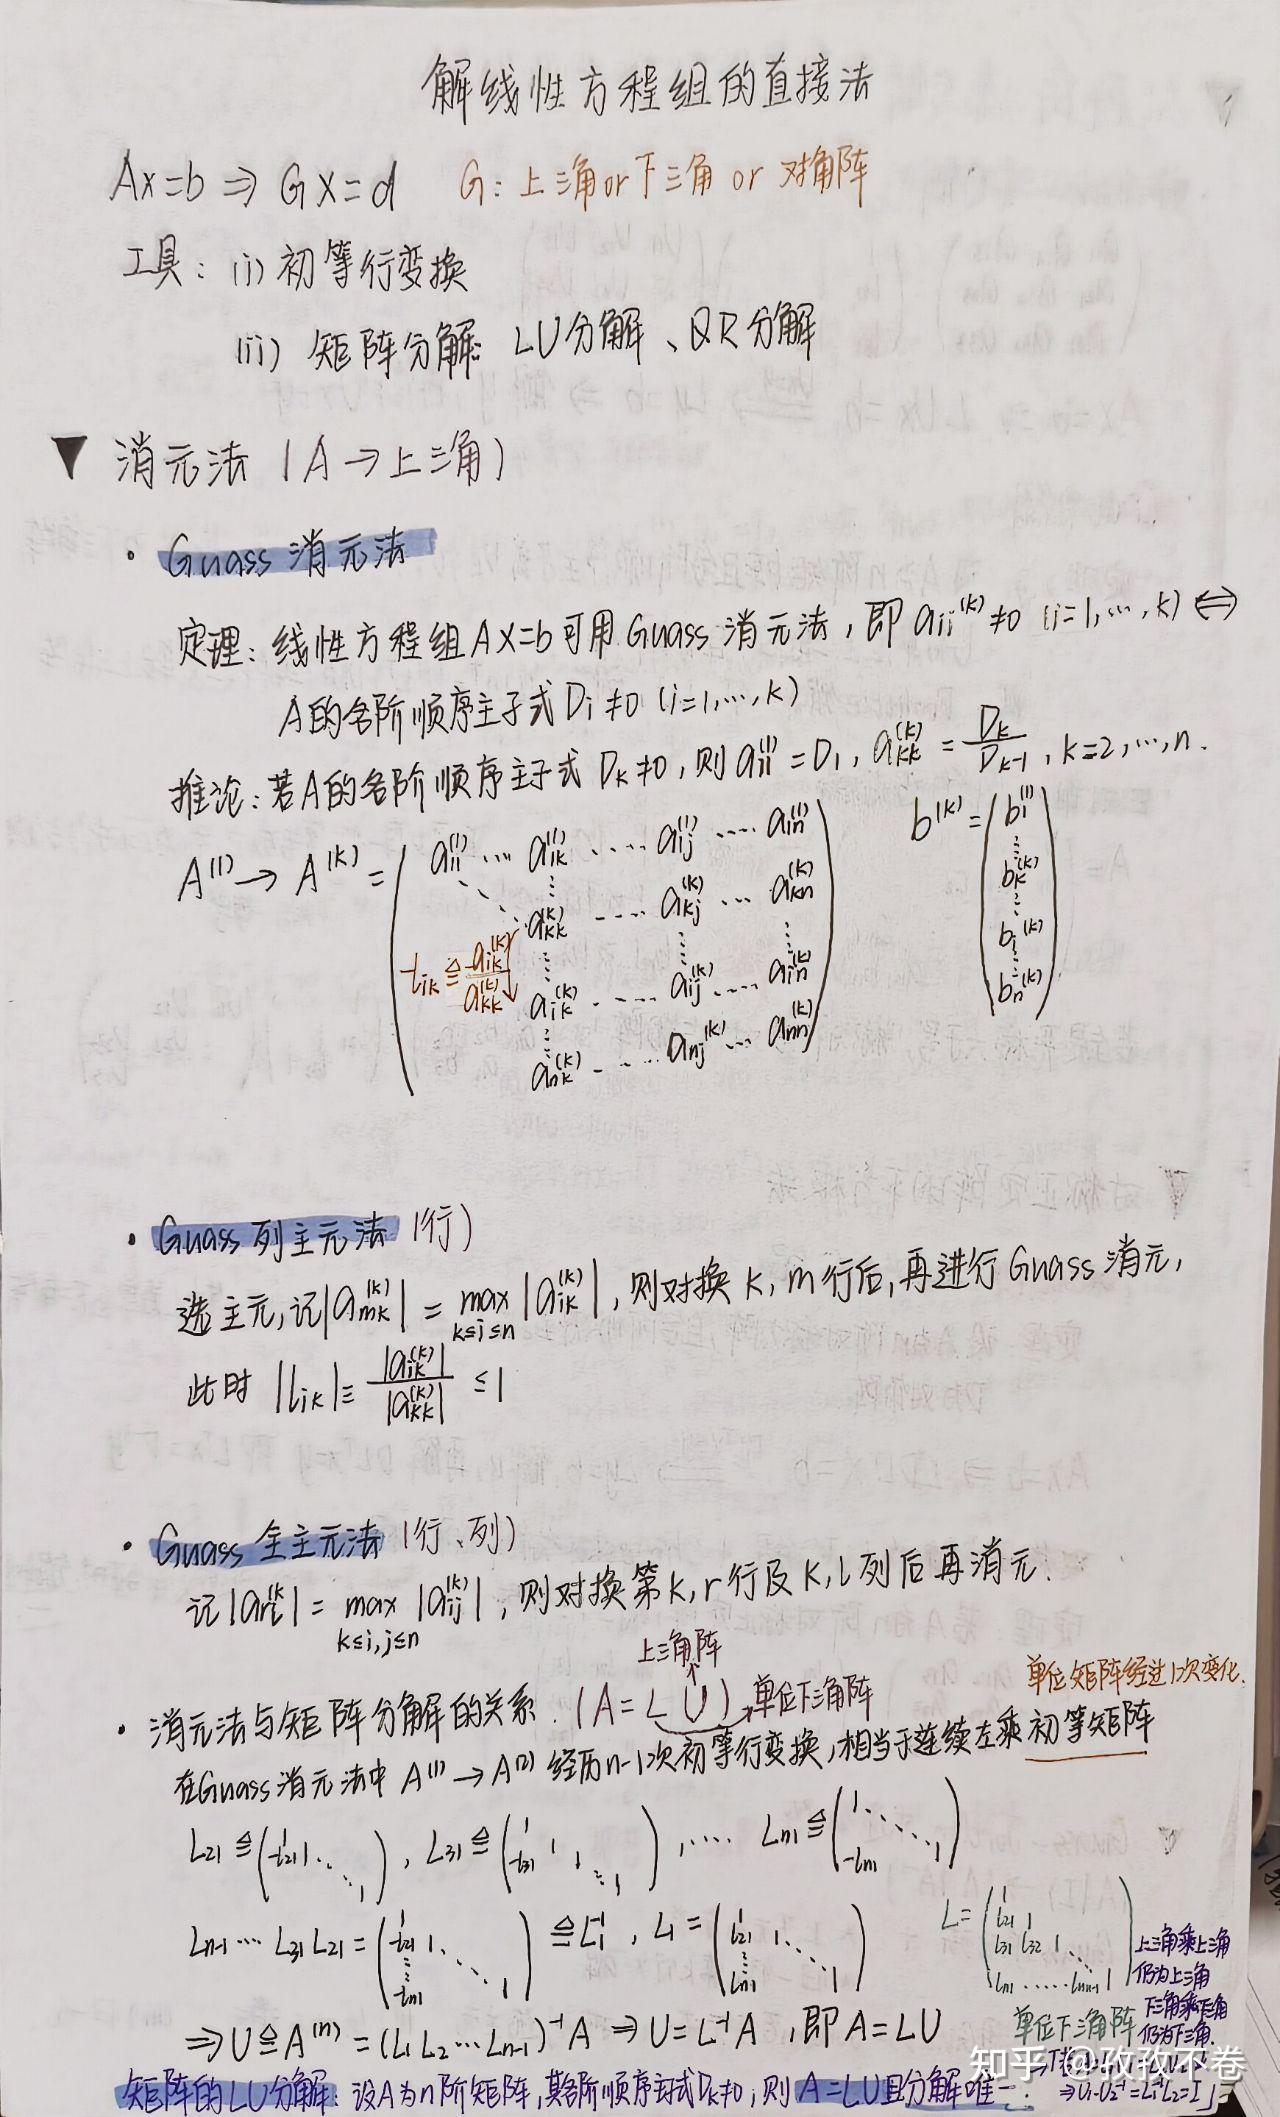 解线性方程组的直接法
Ax=b ⇒ Gx=d  G: 上三角or下三角 or 对角阵
工具: (i) 初等行变换
(ii) 矩阵分解: LU分解、QR分解
▼ 消元法 (A→上三角)
· Guass 消元法
定理: 线性方程组Ax=b可用Guass消元法, 即 aᵢᵢ⁽ᵏ⁾≠0 (i=1,…,k) ⇔
A的各阶顺序主子式 Dᵢ≠0 (i=1,…,k)
推论: 若A的各阶顺序主子式 Dₖ≠0, 则 a₁₁⁽¹⁾=D₁, aₖₖ⁽ᵏ⁾=Dₖ/Dₖ₋₁, k=2,…,n.
A⁽¹⁾→A⁽ᵏ⁾= ( a₁₁⁽¹⁾ … a₁ₖ⁽¹⁾ …. a₁ⱼ⁽¹⁾ …. a₁ₙ⁽¹⁾  b⁽ᵏ⁾= ( b₁⁽¹⁾
aₖₖ⁽ᵏ⁾ …. aₖⱼ⁽ᵏ⁾ … aₖₙ⁽ᵏ⁾  bₖ⁽ᵏ⁾
-lᵢₖ ≜ -aᵢₖ⁽ᵏ⁾/aₖₖ⁽ᵏ⁾  aᵢₖ⁽ᵏ⁾ …. aᵢⱼ⁽ᵏ⁾ …. aᵢₙ⁽ᵏ⁾  bᵢ⁽ᵏ⁾
aₙₖ⁽ᵏ⁾ …. aₙⱼ⁽ᵏ⁾ … aₙₙ⁽ᵏ⁾ )  bₙ⁽ᵏ⁾ )
· Guass 列主元法 (行)
选主元, 记|aₘₖ⁽ᵏ⁾| = max k≤i≤n |aᵢₖ⁽ᵏ⁾|, 则对换 k, m行后, 再进行 Guass 消元,
此时 |lᵢₖ| = |aᵢₖ⁽ᵏ⁾|/|aₖₖ⁽ᵏ⁾| ≤1
· Guass 全主元法 (行、列)
记|aᵣₗ⁽ᵏ⁾| = max k≤i,j≤n |aᵢⱼ⁽ᵏ⁾|, 则对换第k, r行及k, l列后再消元.
上三角阵
单位矩阵经过1次变化.
· 消元法与矩阵分解的关系. (A=LU) 单位下三角阵
在Guass消元法中 A⁽¹⁾→A⁽²⁾ 经历n-1次初等行变换, 相当于连续左乘初等矩阵
L₂₁ ≜ (1 -l₂₁ 1 ⋱ 1), L₃₁ ≜ (1 -l₃₁ 1 1 ⋱ 1), …. Lₙ₁ ≜ (1 ⋱ -lₙ₁ 1)
Lₙ₋₁ … L₃₁ L₂₁ = (1 -l₂₁ 1 ⋮ ⋱ -lₙ₁ 1) ≜ L₁⁻¹, L₁ = (1 l₂₁ 1 ⋮ ⋱ lₙ₁ 1)  L = (1 l₂₁ 1 l₃₁ l₃₂ 1 ⋱ lₙ₁ …… lₙₙ₋₁ 1)
上三角乘上三角
仍为上三角
下三角乘下三角
仍为下三角.
单位下三角阵
⇒U≜A⁽ⁿ⁾=(L₁L₂…Lₙ₋₁)⁻¹A ⇒ U=L⁻¹A, 即 A=LU
矩阵的LU分解: 设A为n阶矩阵, 其各阶顺序主子式Dₖ≠0, 则A=LU且分解唯一.
⇒U₁·U₂⁻¹=L₁⁻¹L₂=I
知乎 @孜孜不卷